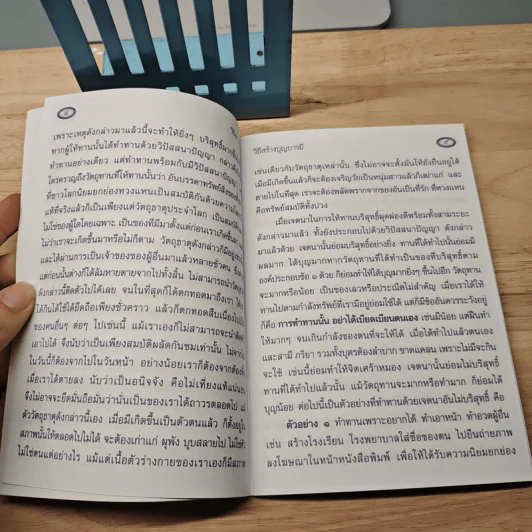 เพราะเหตุดังกล่าวมาแล้วนี้จะทำให้ยิ่งๆ บริสุทธิ์มากขึ้น
หากผู้ให้ทานนั้นได้ทำทานด้วยวิปัสสนาปัญญา กล่าวคือ
ทำทานอย่างเดียว แต่ทำทานพร้อมกับมีวิปัสสนาปัญญา
ใคร่ครวญถึงวัตถุทานที่ให้ทานนั้นว่า อันบรรดาทรัพย์สิ่งของ
ที่ชาวโลกนิยมยกย่องหวงแหนเป็นสมบัติกันด้วยความ
แท้ที่จริงแล้วก็เป็นเพียงแต่วัตถุธาตุประจำโลก เป็นสมบัติ
ไม่ใช่ของผู้ใดโดยเฉพาะ เป็นของที่มีมาตั้งแต่ก่อนเราเกิดขึ้นมา
ไม่ว่าเราจะเกิดขึ้นมาหรือไม่ก็ตาม วัตถุธาตุดังกล่าวก็มีอยู่
และได้ผ่านการเป็นเจ้าของของผู้อื่นมาแล้วหลายชั่วคน
แต่ก่อนนั้นต่างก็ได้ล้มหายตายจากไปทั้งสิ้น ไม่สามารถนำวัตถุ
ดังกล่าวนี้ติดตัวไปได้เลย จนในที่สุดก็ได้ตกทอดมาถึงเรา
ได้กินได้ใช้ได้ยึดถือเพียงชั่วคราว แล้วก็ตกทอดสืบเนื่องไป
ของคนอื่นๆ ต่อๆ ไปเช่นนี้ แม้เราเองก็ไม่สามารถจะนำ
เอาไปได้ จึงนับว่าเป็นเพียงสมบัติผลัดกันชมเท่านั้น ไม่จาก
ในวันนี้ก็ต้องจากไปในวันหน้า อย่างน้อยเราก็ต้องจาก
เมื่อเราได้ตายลง นับว่าเป็นอนิจจัง คือไม่เที่ยงแท้แน่นอน
จึงไม่อาจจะยึดมั่นถือมั่นว่านั่นเป็นของเราได้ถาวรตลอดไป
ตัววัตถุธาตุดังกล่าวนี้เอง เมื่อมีเกิดขึ้นเป็นตัวตนแล้ว ก็ตั้งอยู่ใน
สภาพนั้นให้ตลอดไปไม่ได้ จะต้องเก่าแก่ ผุพัง บุบสลายไป ไม่ใช่ตัว
ไม่ใช่ตนแต่อย่างไร แม้แต่เนื้อตัวร่างกายของเราเองก็มีสภาพ
วิธีสร้างบุญบารมี
เช่นเดียวกับวัตถุธาตุเหล่านั้น ซึ่งไม่อาจจะตั้งมั่นให้ยั่งยืนอยู่ได้
เมื่อมีเกิดขึ้นแล้วก็จะต้องเจริญวัยเป็นหนุ่มสาวแล้วก็เฒ่าแก่ และ
ตายไปในที่สุด เราจะต้องพลัดพรากจากของอันเป็นที่รัก ที่หวงแหน
คือทรัพย์สมบัติทั้งปวง
เมื่อเจตนาในการให้ทานบริสุทธิ์ผุดผ่องดีพร้อมทั้งสามระยะ
ดังกล่าวมาแล้ว ทั้งยังประกอบไปด้วยวิปัสสนาปัญญา ดังกล่าว
มาแล้วด้วย เจตนานั้นย่อมบริสุทธิ์อย่างยิ่ง ทานที่ได้ทำไปนั้นย่อมมี
ผลมาก ได้บุญมากหากวัตถุทานที่ได้ทำเป็นของที่บริสุทธิ์ตาม
องค์ประกอบข้อ ๑ ด้วย ก็ย่อมทำให้ได้บุญมากยิ่งๆ ขึ้นไปอีก วัตถุทาน
จะมากหรือน้อย เป็นของเลวหรือประณีตไม่สำคัญ เมื่อเราได้ให้
ทานไปตามกำลังทรัพย์ที่เรามีอยู่ย่อมใช้ได้ แต่ก็มีข้ออันควรระวังอยู่
ก็คือ การทำทานนั้น อย่าได้เบียดเบียนตนเอง เช่นมีน้อย แต่ฝืนทำ
ให้มากๆ จนเกินกำลังของตนที่จะให้ได้ เมื่อได้ทำไปแล้วตนเอง
และสามี ภริยา รวมทั้งบุตรต้องลำบาก ขาดแคลน เพราะไม่มีจะกิน
จะใช้ เช่นนี้ย่อมทำให้จิตเศร้าหมอง เจตนานั้นย่อมไม่บริสุทธิ์
ทานที่ได้ทำไปแล้วนั้น แม้วัตถุทานจะมากหรือทำมาก ก็ย่อมได้
บุญน้อย ต่อไปนี้เป็นตัวอย่างที่ทำทานด้วยเจตนาอันไม่บริสุทธิ์ คือ
ตัวอย่าง ๑ ทำทานเพราะอยากได้ ทำเอาหน้า ทำอวดผู้อื่น
เช่น สร้างโรงเรียน โรงพยาบาลใส่ชื่อของตน ไปยืนถ่ายภาพ
ลงโฆษณาในหน้าหนังสือพิมพ์ เพื่อให้ได้รับความนิยมยกย่อง